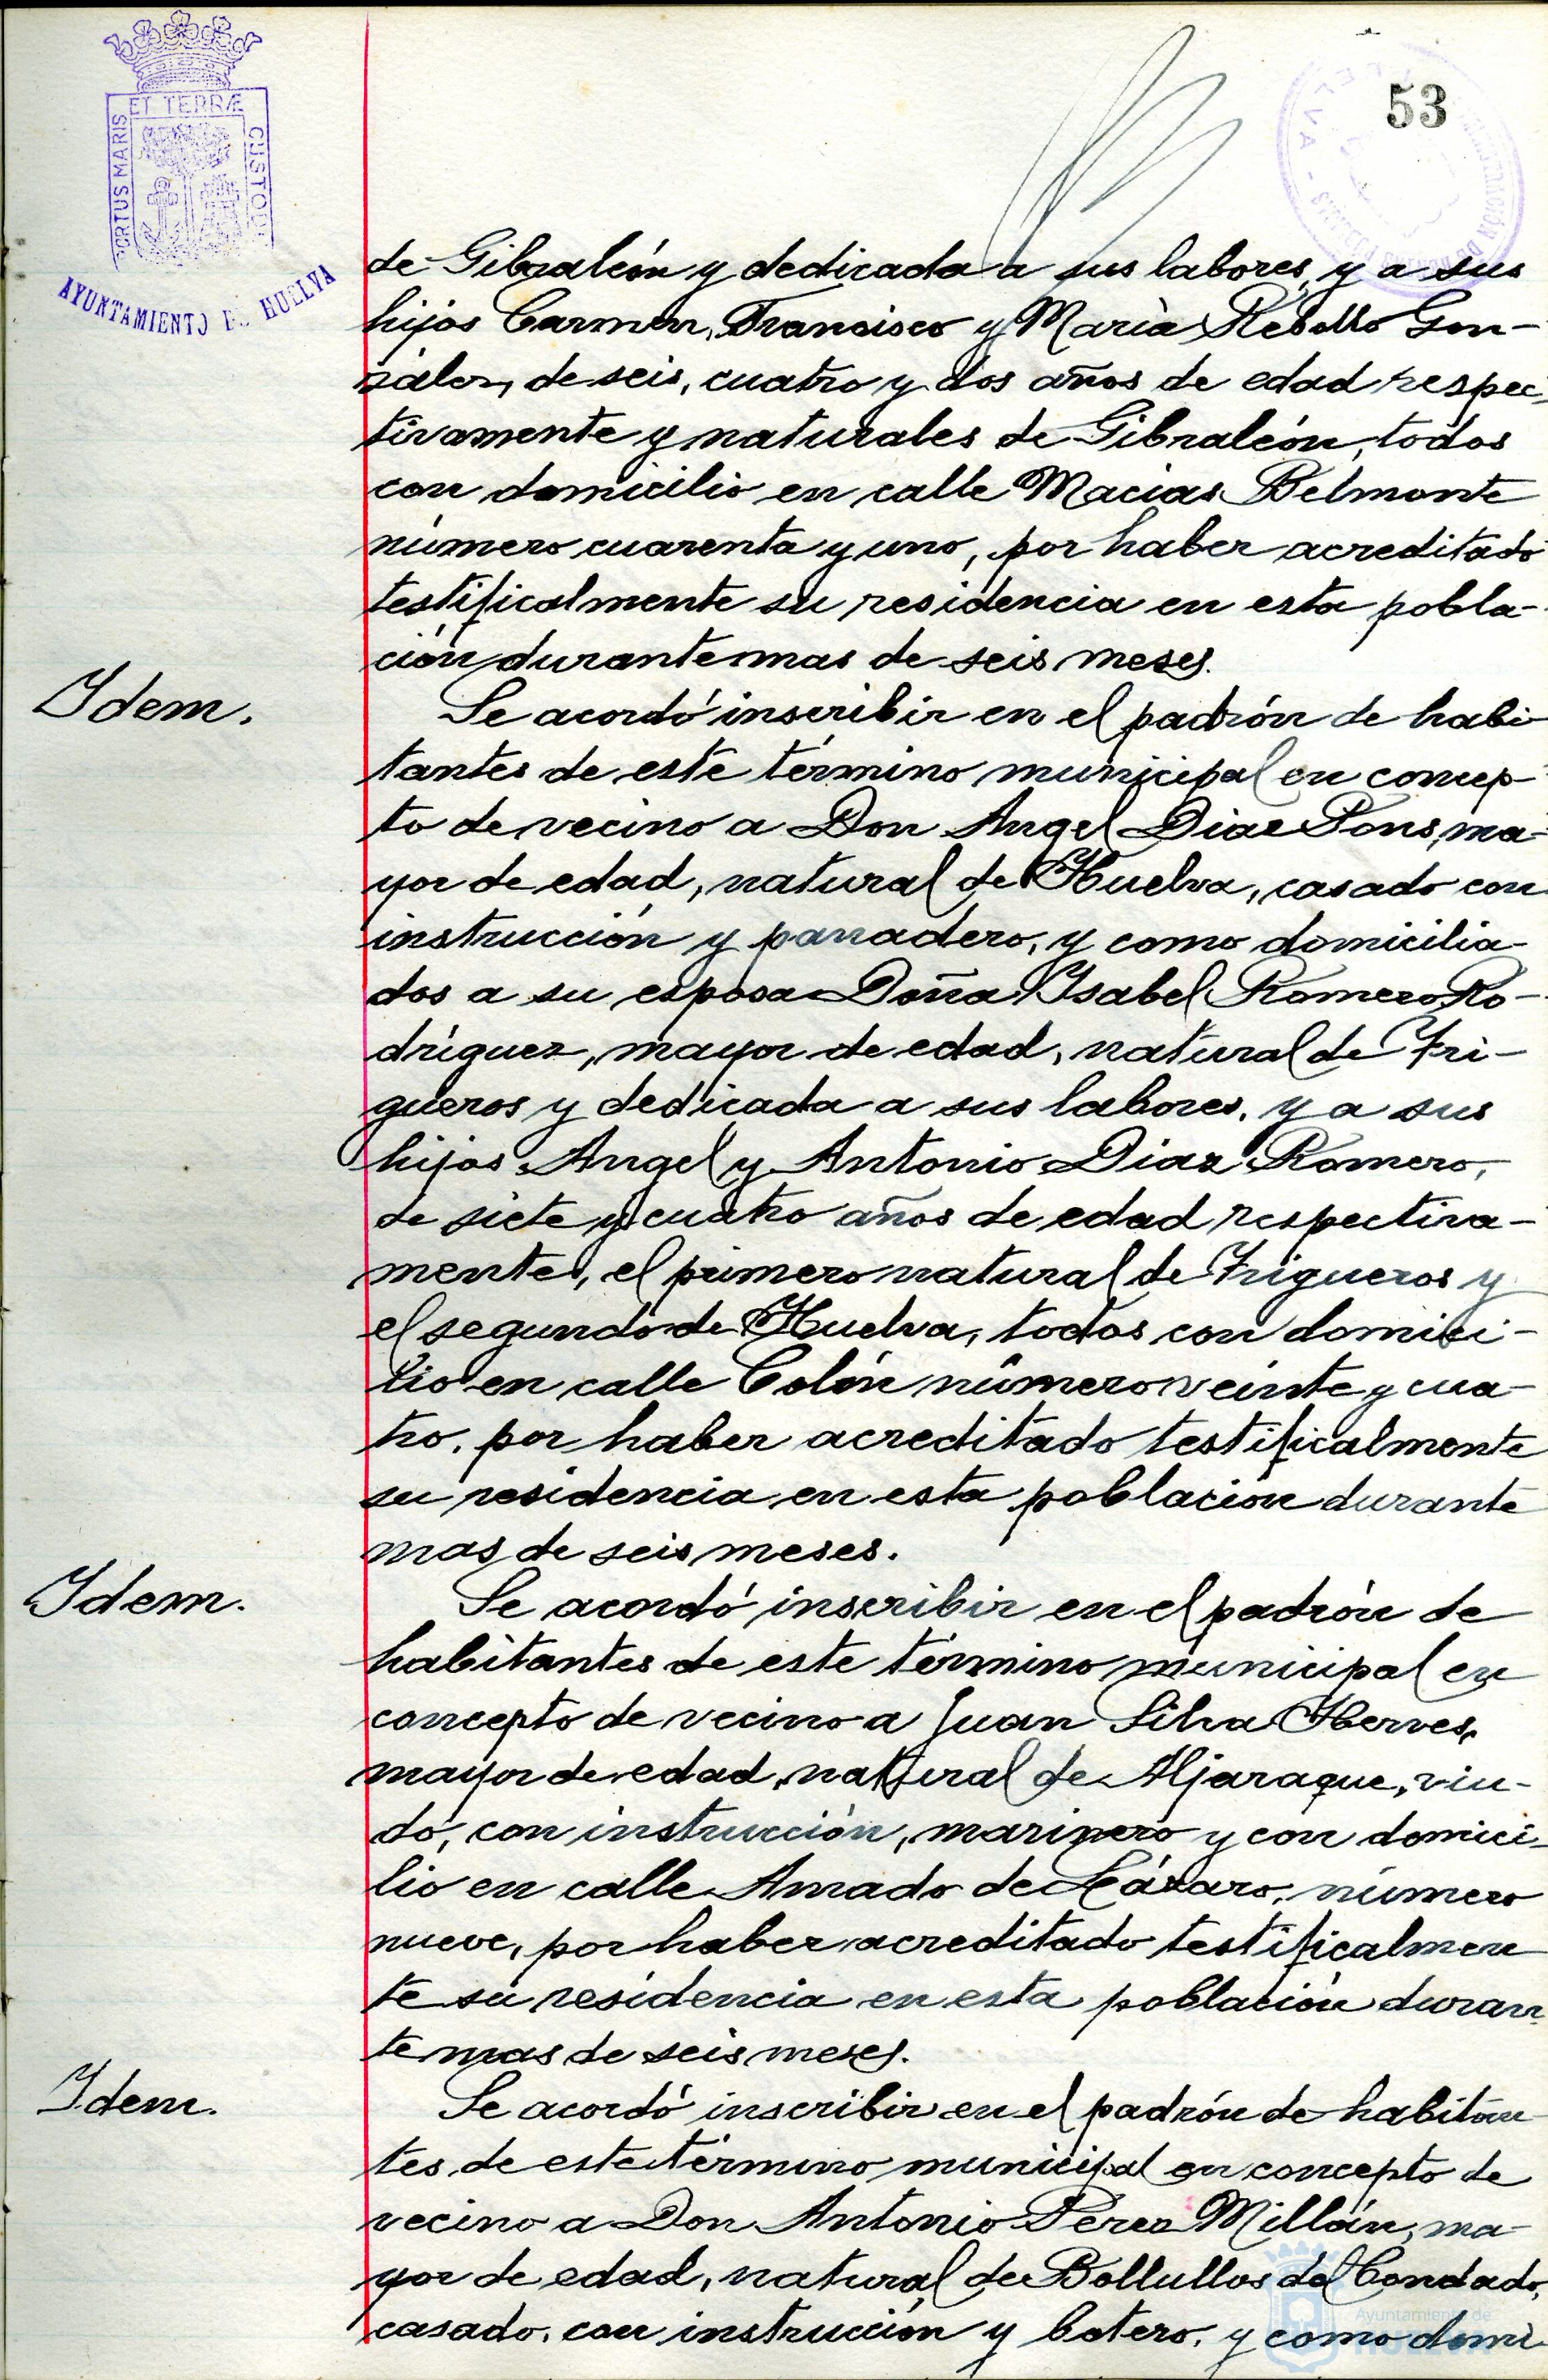 53
ET TERRÆ
PORTUS MARIS
CUSTODI
AYUNTAMIENTO DE HUELVA
de Gibraleón y dedicada a sus labores, y a sus
hijos Carmen, Francisco y María Rebollo Gon-
zález, de seis, cuatro y dos años de edad respec-
tivamente y naturales de Gibraleón, todos
con domicilio en calle Macias Belmonte
número cuarenta y uno, por haber acreditado
testificalmente su residencia en esta pobla-
ción durante mas de seis meses.
Idem.
Se acordó inscribir en el padrón de habi-
tantes de este término municipal en concep-
to de vecino a Don Angel Diaz Pons, ma-
yor de edad, natural de Huelva, casado con
instrucción y panadero, y como domicilia-
dos a su esposa Doña Isabel Romero Ro-
dríguez, mayor de edad, natural de Tri-
gueros y dedicada a sus labores, y a sus
hijos Angel y Antonio Diaz Romero,
de siete y cuatro años de edad respectiva-
mente, el primero natural de Trigueros y
el segundo de Huelva, todos con domici-
lio en calle Colón número veinte y cua-
tro, por haber acreditado testificalmente
su residencia en esta población durante
mas de seis meses.
Idem.
Se acordó inscribir en el padrón de
habitantes de este término municipal en
concepto de vecino a Juan Silva Herves,
mayor de edad, natural de Aljaraque, viu-
do, con instrucción, marinero y con domici-
lio en calle Amado de Lázaro, número
nueve, por haber acreditado testificalmen
te su residencia en esta población duran
te mas de seis meses.
Idem.
Se acordó inscribir en el padrón de habitan
tes de este término municipal en concepto de
vecino a Don Antonio Pérez Millán, ma-
yor de edad, natural de Bollullos del Condado,
casado, con instrucción y botero, y como domi-
Ayuntamiento de
HUELVA